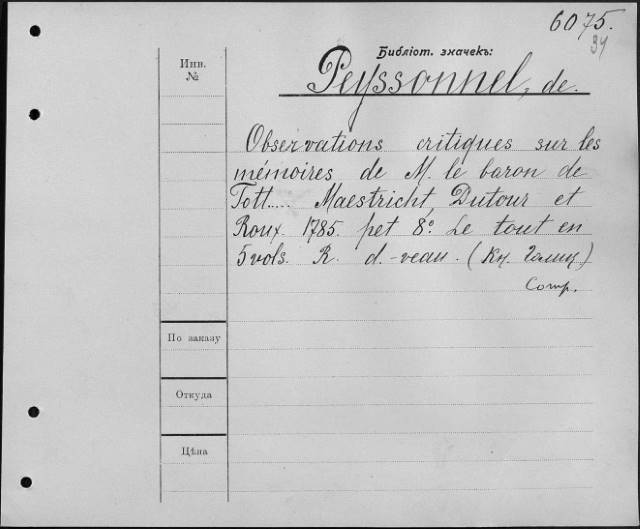 6075.
34
Библіот. значекъ:
Инв.
№
Peyssonnel, de.
Observations critiques sur les
mémoires de M. le baron de
Tott..... Maestricht, Dutour et
Roux. 1785. pet 8º. Le tout en
5 vols. R. d.-veau. (Кн. Голиц.)
Comp.
По заказу
Откуда
Цѣна